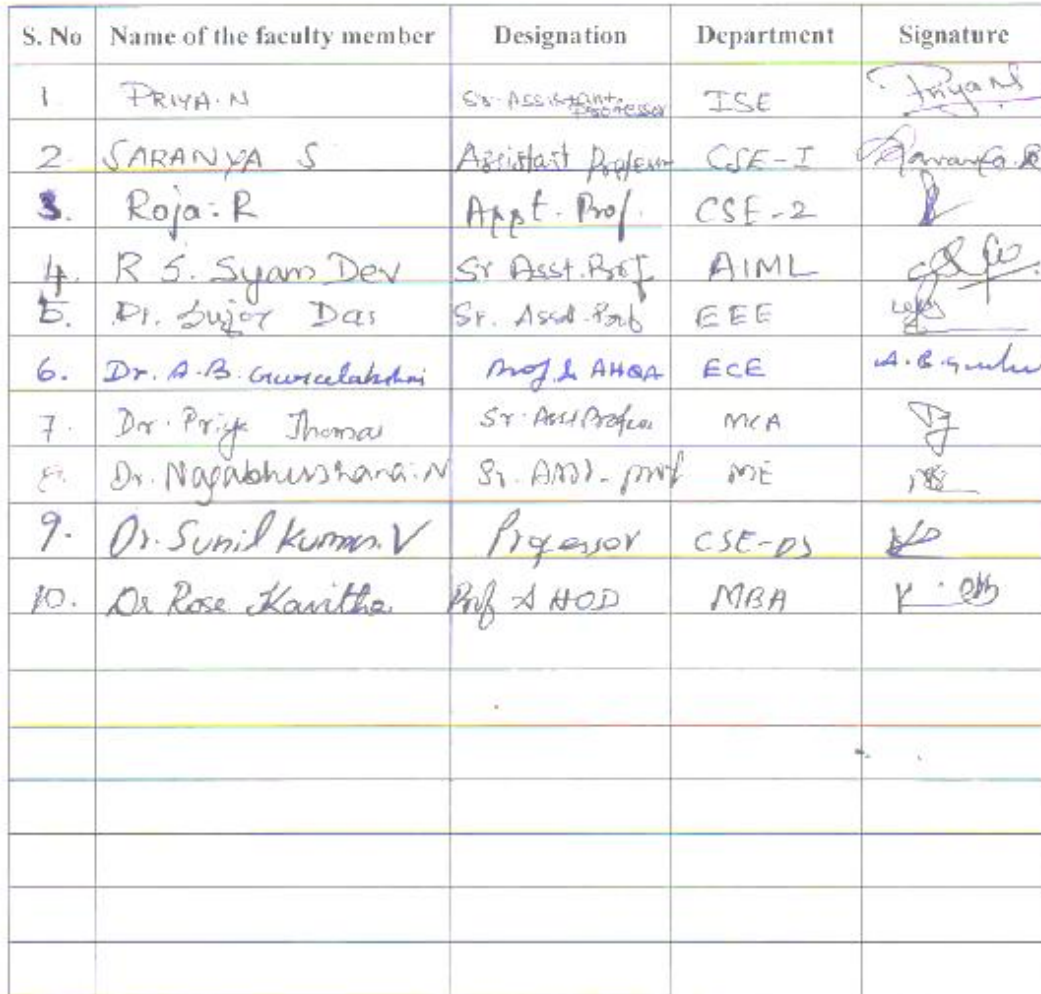 S. No Name of the faculty member Designation Department Signature
1. PRIYA. N Sr. Assistant Professor ISE Priya N
2. SARANYA S Assistant Professor CSE-I Saranya S
3. Roja. R Asst. Prof. CSE-2
4. R S. Syam Dev Sr Asst. Prof AIML
5. Dr. Sujoy Das Sr. Asst. Prof EEE
6. Dr. A.B. Gurulakshmi Prof & AHOD ECE A.B. Guru
7. Dr. Priya Thomas Sr. Asst Professor MCA
8. Dr. Nagabhushana. N Sr. Asst. prof ME
9. Dr. Sunil Kumar. V Professor CSE-DS
10. Dr Rose Kavitha Prof & HOD MBA